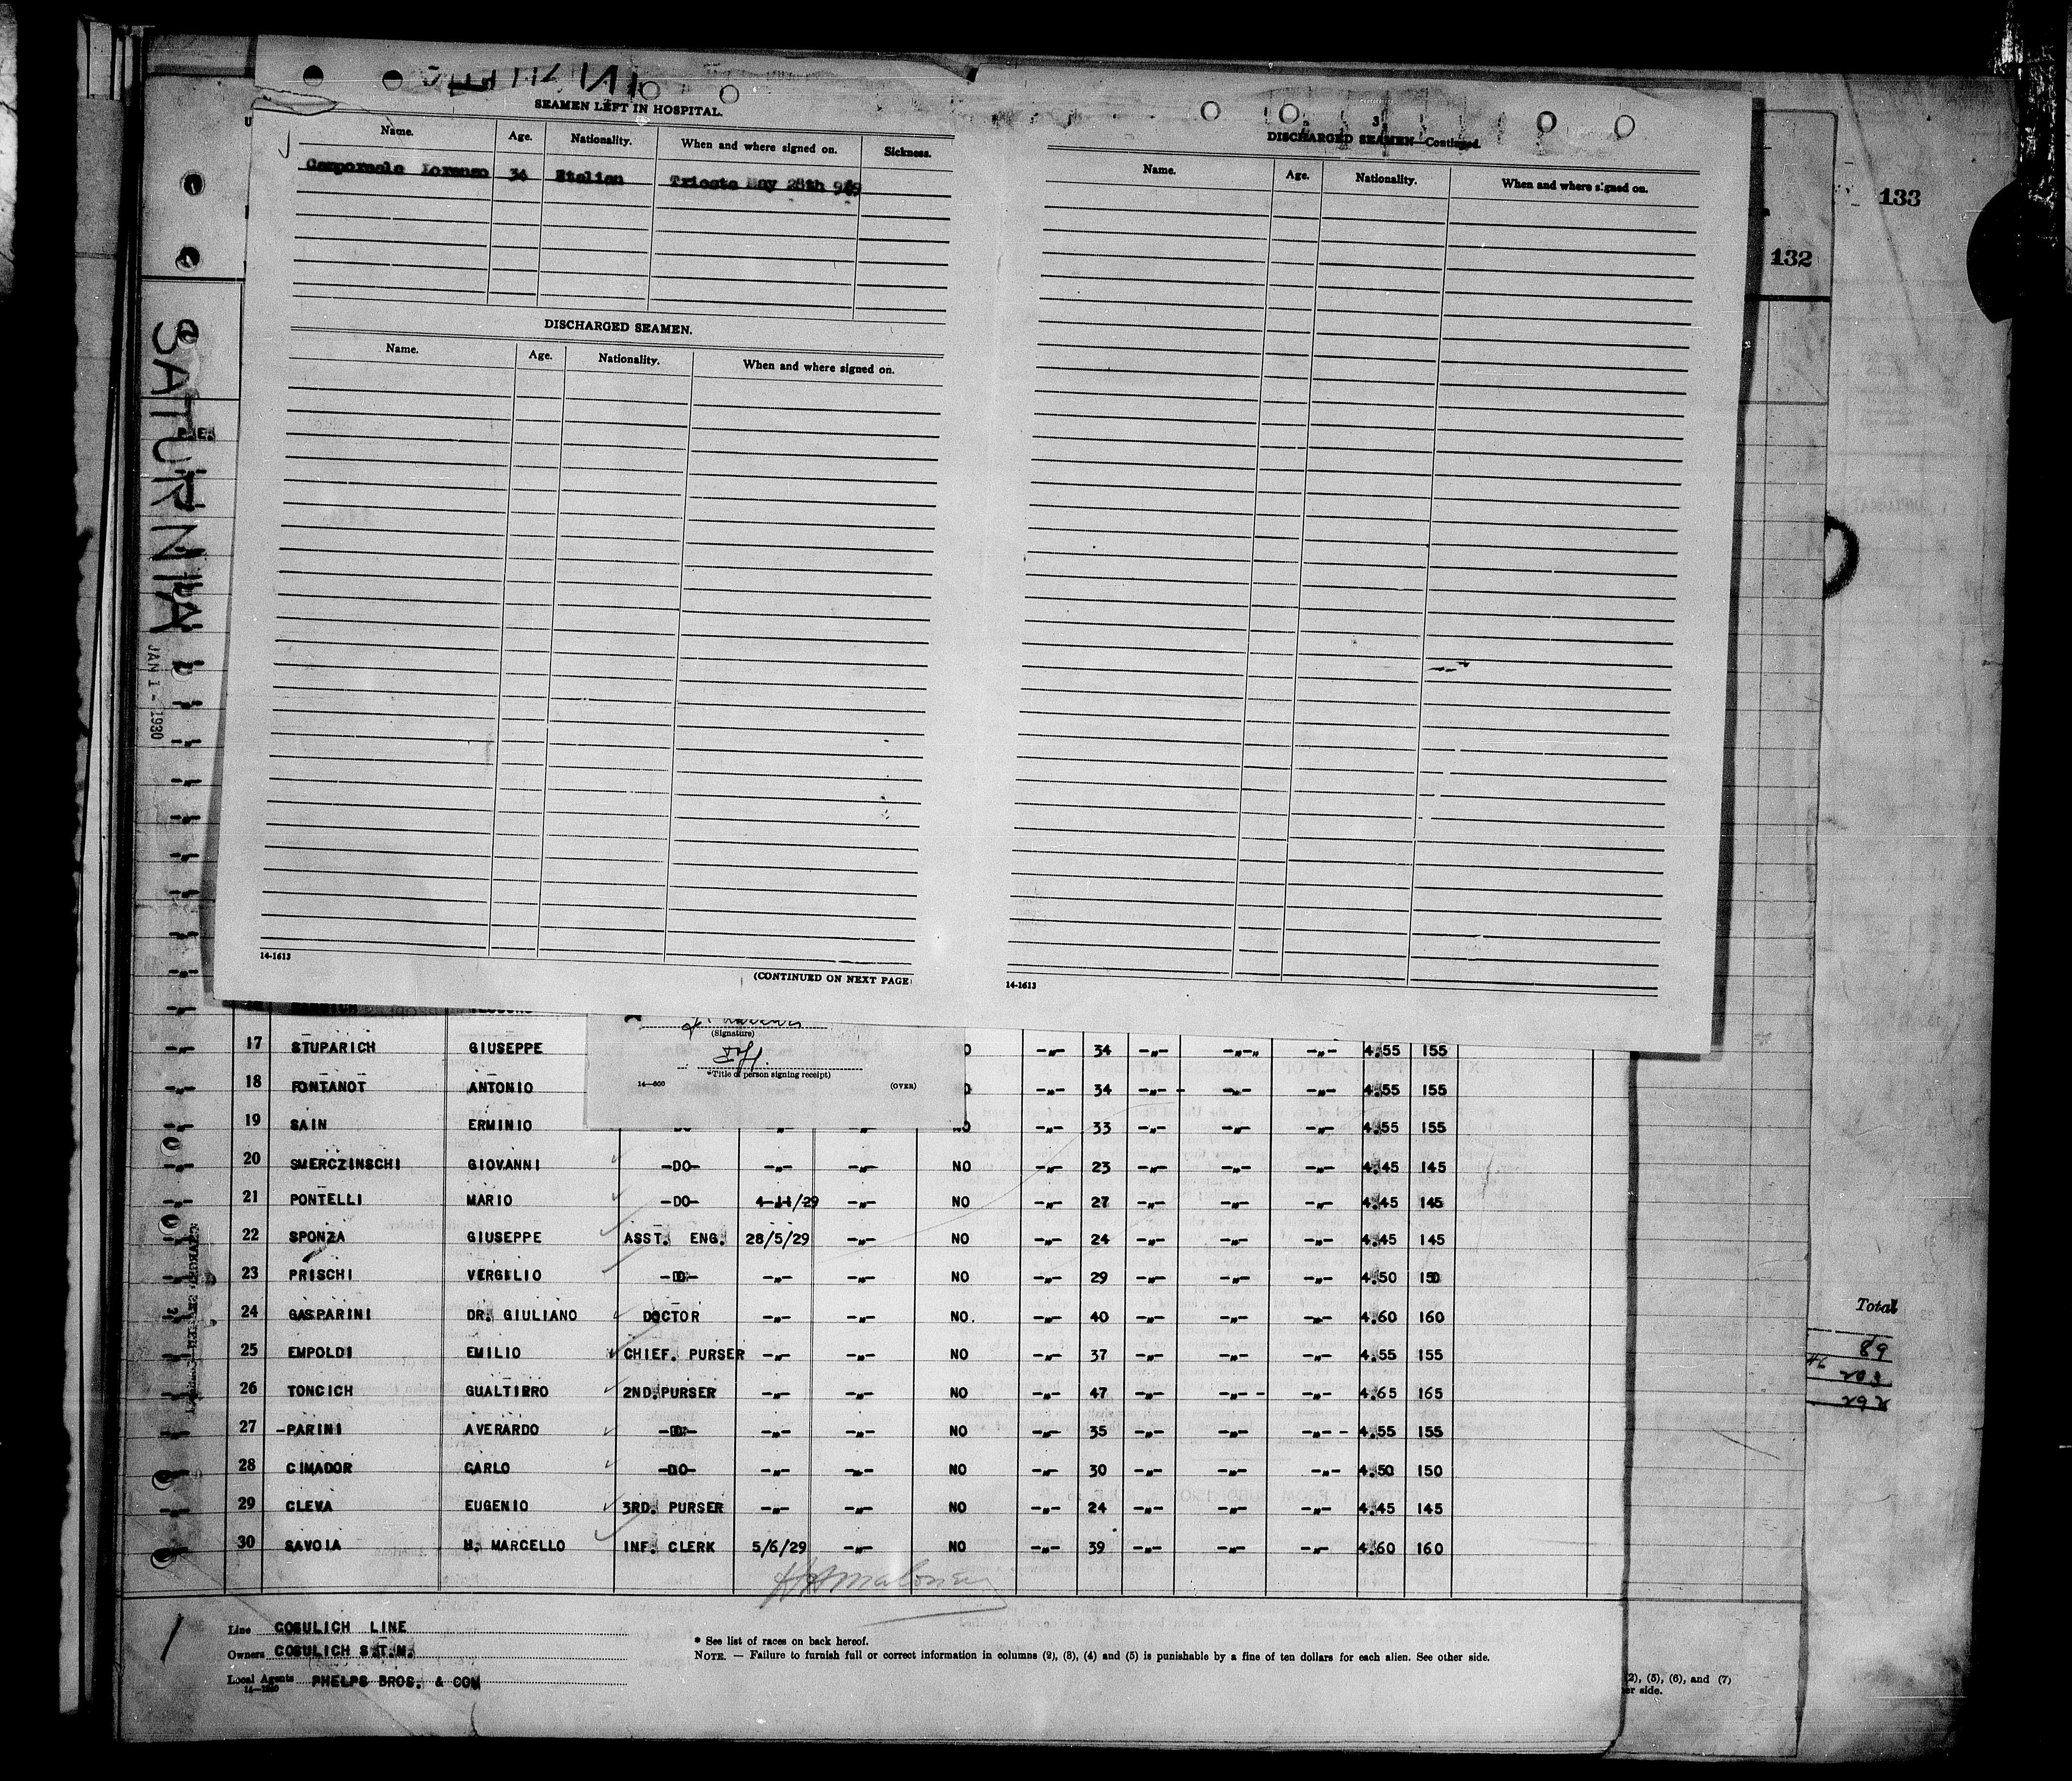 SEAMEN LEFT IN HOSPITAL.
Name. Age. Nationality. When and where signed on. Sickness.
Lorenzo 34 Italian Trieste May 28th 929
DISCHARGED SEAMEN.
Name. Age. Nationality. When and where signed on.
14-1613
(CONTINUED ON NEXT PAGE)
3
DISCHARGED SEAMEN—Continued.
Name. Age. Nationality. When and where signed on.
14-1613
133
132
SATURNIA
JAN 1 - 1930
(Signature)
*Title of person signing receipt)
14—600 (OVER)
17 STUPARICH GIUSEPPE -"- 34 -"- -"- -"- 4.55 155
18 FONTANOT ANTONIO -"- 34 -"- -"- -"- 4.55 155
19 SAIN ERMINIO -"- -"- -"- 33 -"- -"- -"- 4.55 155
20 SMERCZINSCHI GIOVANNI -DO- -"- -"- NO -"- 23 -"- -"- -"- 4.45 145
21 PONTELLI MARIO -DO- 4-11/29 -"- NO -"- 27 -"- -"- -"- 4.45 145
22 SPONZA GIUSEPPE ASST. ENG. 28/5/29 -"- NO -"- 24 -"- -"- -"- 4.45 145
23 PRISCHI VERGILIO -DO- -"- -"- NO -"- 29 -"- -"- -"- 4.50 150
24 GASPARINI DR. GIULIANO DOCTOR -"- -"- NO. -"- 40 -"- -"- -"- 4.60 160
25 EMPOLDI EMILIO CHIEF. PURSER -"- -"- NO -"- 37 -"- -"- -"- 4.55 155
26 TONCICH GUALTIERO 2ND.PURSER -"- -"- NO -"- 47 -"- -"- -"- 4.65 165
27 -PARINI AVERARDO -DO- -"- -"- NO -"- 35 -"- -"- -"- 4.55 155
28 CIMADOR CARLO -DO- -"- -"- NO -"- 30 -"- -"- -"- 4.50 150
29 CLEVA EUGENIO 3RD. PURSER -"- -"- NO -"- 24 -"- -"- -"- 4.45 145
30 SAVOIA M. MARCELLO INF. CLERK 5/6/29 -"- NO -"- 39 -"- -"- -"- 4.60 160
Total
89
203
292
Line COSULICH LINE
Owners COSULICH S.T.N.
Local Agents PHELPS BROS. & COM
* See list of races on back hereof.
NOTE. — Failure to furnish full or correct information in columns (2), (3), (4) and (5) is punishable by a fine of ten dollars for each alien. See other side.
(2), (5), (6), and (7)
er side.